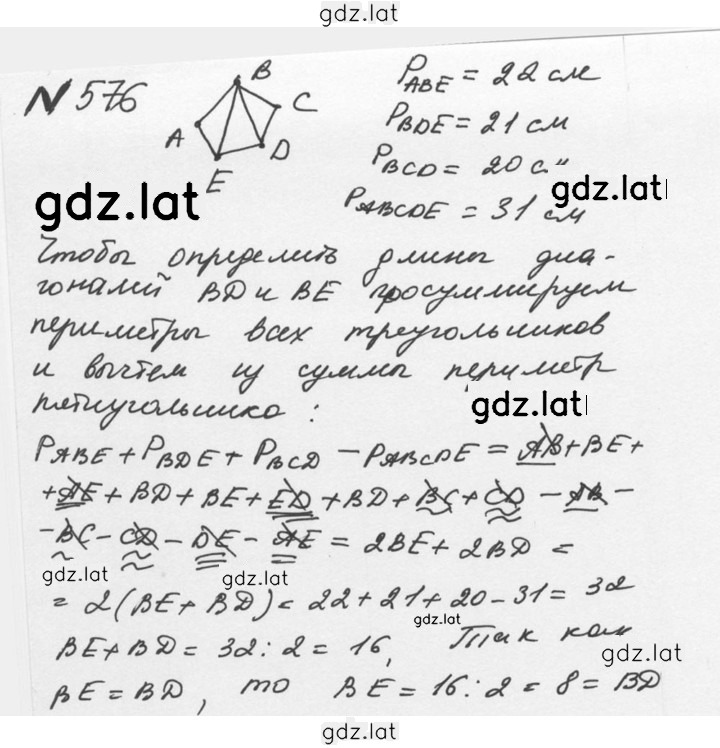 gdz.lat
N 576
B
C
A
D
E
P_ABE = 22 см
P_BDE = 21 см
P_BCD = 20 с
gdz.lat
gdz.lat
P_ABCDE = 31 см
Чтобы определить длины диа-
гоналей BD и BE просуммируем
периметры всех треугольников
и вычтем из суммы периметр
пятиугольника:
gdz.lat
P_ABE + P_BDE + P_BCD - P_ABCDE = AB + BE +
+ AE + BD + BE + ED + BD + BC + CD - AB -
- BC - CD - DE - AE = 2BE + 2BD =
gdz.lat
gdz.lat
= 2(BE + BD) = 22 + 21 + 20 - 31 = 32
gdz.lat
BE + BD = 32 : 2 = 16, Так как
gdz.lat
BE = BD, то BE = 16 : 2 = 8 = BD
gdz.lat